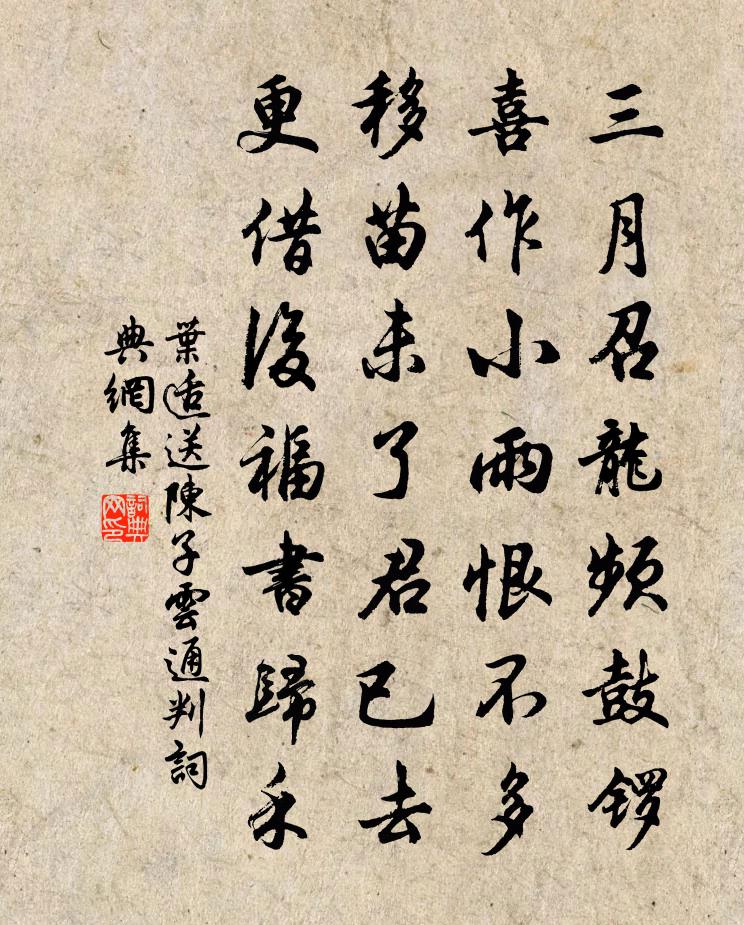 三月召龍頻鼓鑼
喜作小雨恨不多
移苗未了君已去
更借後福書歸禾
葉适送陳子雲通判詞
典網集
詞典网印